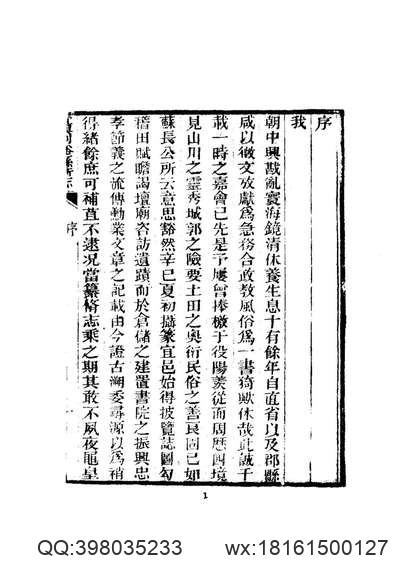 序
我
朝中興戡亂寰海鏡清休養生息十有餘年自直省以及郡縣
咸以徵文攷獻爲急務合政教風俗爲一書猗歟休哉此誠千
載一時之嘉會已先是予屢曾捧檄于役陽羨從而周歷四境
見山川之靈秀城郭之險要土田之奧衍民俗之善良固已如
蘇長公所云意思豁然辛巳夏初攝篆宜邑始得披覽誌圖勾
稽田賦瞻謁壇廟咨訪遺蹟而於倉儲之建置書院之振興忠
孝節義之流傳勳業文章之記載由今證古溯委尋源以爲稍
得緒餘庶可補苴不逮況當纂脩志乘之期其敢不夙夜黽皇
序
1
QQ:398035233 wx:18161500127